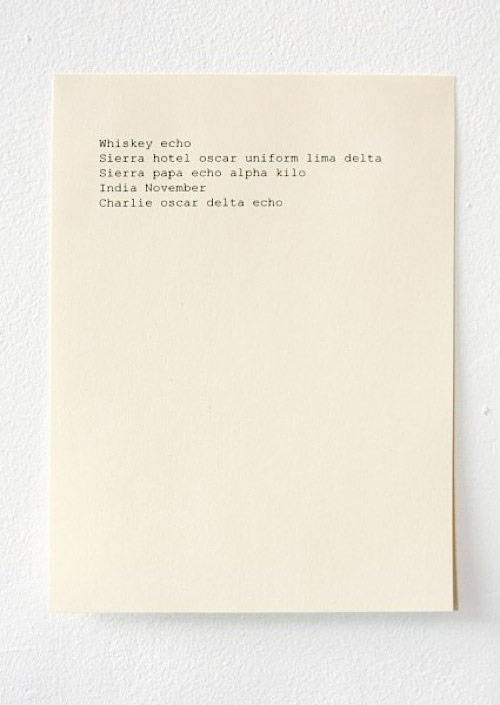 Whiskey echo
Sierra hotel oscar uniform lima delta
Sierra papa echo alpha kilo
India November
Charlie oscar delta echo